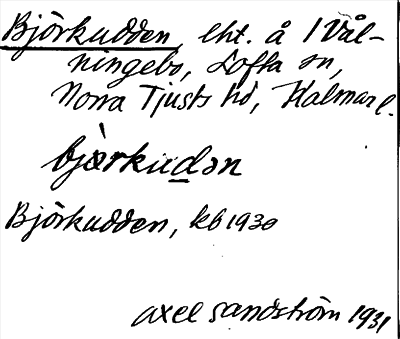 Björkudden, lht. å 1 Vål-
ningebo, Lofta sn,
Norra Tjusts hd, Kalmar l.
bjærkudən
Björkudden, kb 1930
Axel Sandström 1931